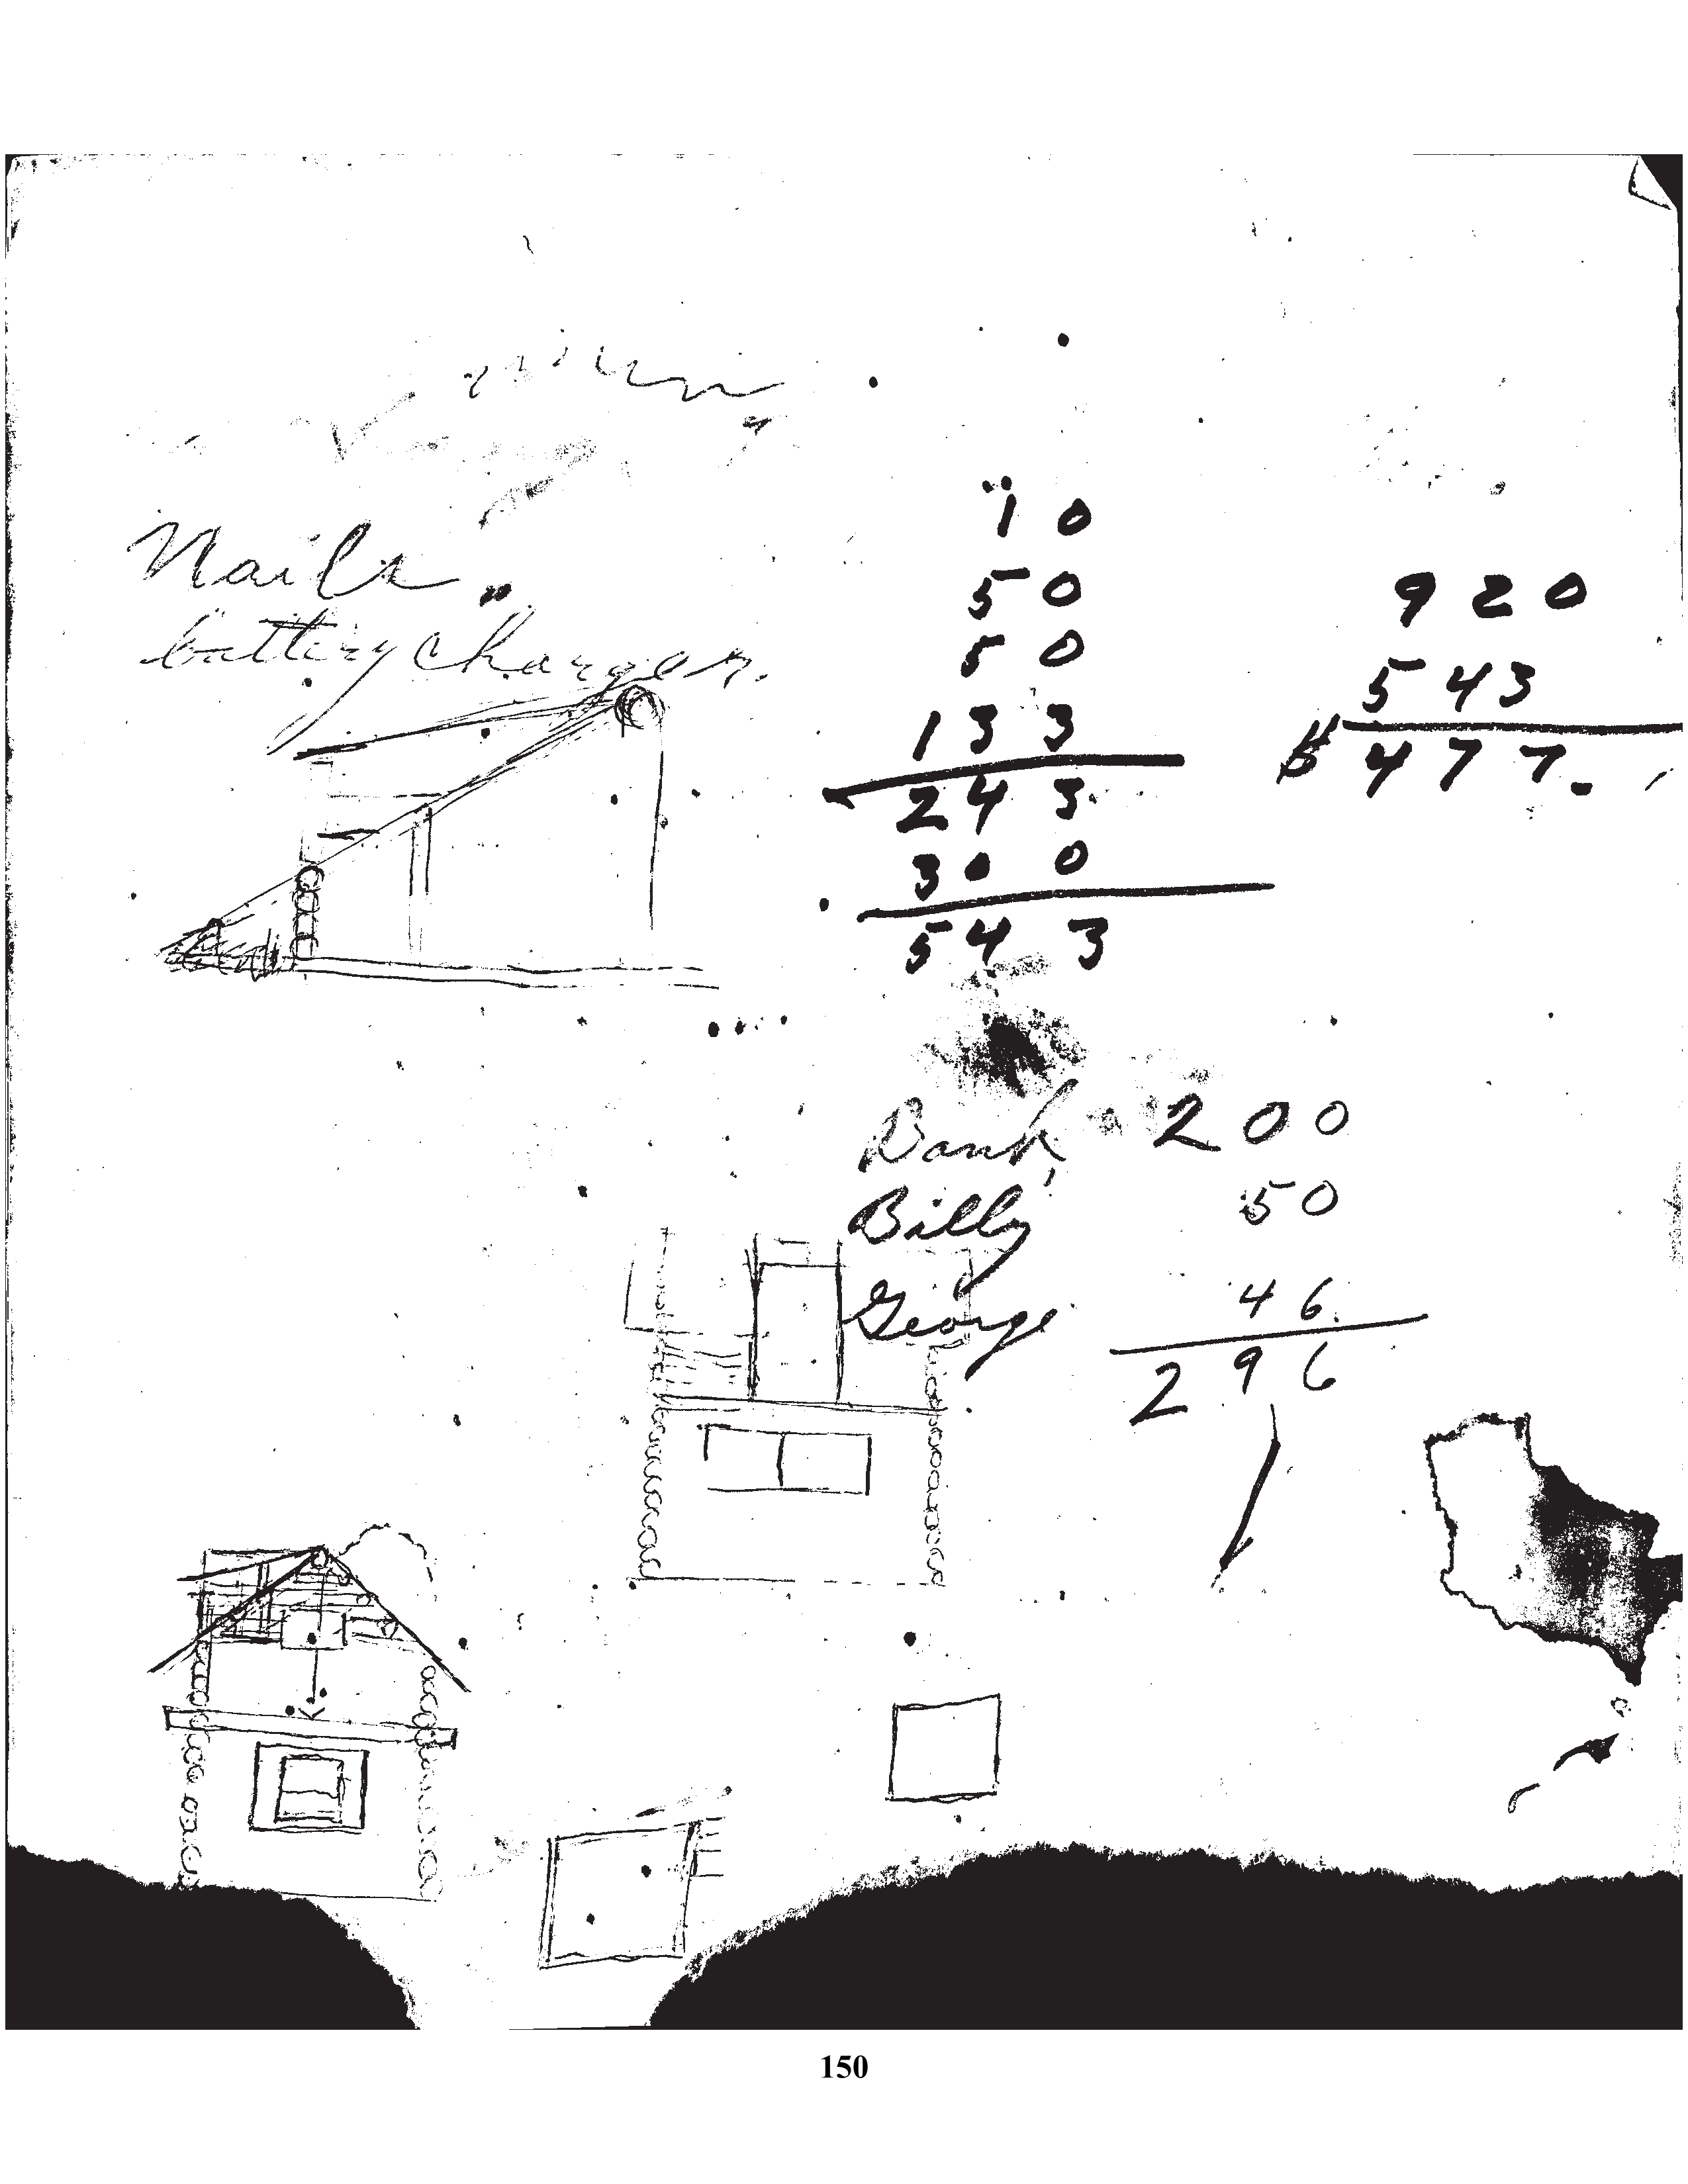 Nails
battery charger.
10
50
50
133
243
300
543
920
543
$ 477.
Bank 200
Billy 50
George 46.
296
150